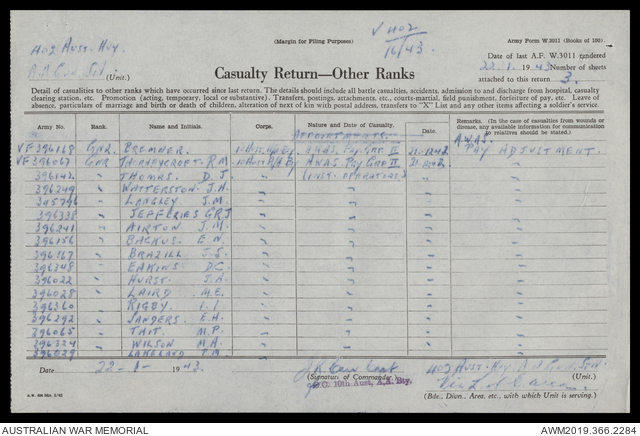 402 Aust. Hvy.
(Unit.)
(Margin for Filing Purposes)
V 402
16/43
Army Form W.3011 (Books of 100).
Date of last A.F. W.3011 rendered
22.1.1943 Number of sheets
attached to this return 3.
Casualty Return—Other Ranks
Detail of casualties to other ranks which have occurred since last return. The details should include all battle casualties, accidents, admission to and discharge from hospital, casualty
clearing station, etc. Promotion (acting, temporary, local or substantive). Transfers, postings, attachments, etc., courts-martial, field punishment, forfeiture of pay, etc. Leave of
absence, particulars of marriage and birth or death of children, alteration of next of kin with postal address, transfers to "X" List and any other items affecting a soldier's service.
Army No. Rank. Name and Initials. Corps. Nature and Date of Casualty. Date. Remarks. (In the case of casualties from wounds or disease, any available information for communication to relatives should be stated.)
APPOINTMENTS.
VF396168 GNR. BREMNER. A.W.A.S. Pay Grp II 21-12-42 A.W.A.S. PAY ADJUSTMENT.
VF396067 GNR THORNEYCROFT. R.M A.W.A.S. Pay Grp II
396142 " THOMAS. D.J.
396249 " WATTERSTON. J.A.
345796 " LANGLEY J.M.
396338 " JEFFERIES G.R.J
396241 " AIRTON. J.M.
396156 " BACKUS. E.N.
396167 " BRAZILL J.S.
396348 " EAKINS. D.C.
396022 " HURST. J.A.
396028 " LAIRD. M.E.
396360 " RIGBY. I.I.
396292 " SANDERS. E.A.
396065 " TAIT. M.P.
396324 " WILSON M.A.
396029 " LAKELAND P.M.
Date 22-1-1943.
(Signature of Commander.)
O.C. 10th Aust. A.A. Bty.
402 AUST. HVY.
(Unit.)
(Bde., Divn., Area, etc., with which Unit is serving.)
AUSTRALIAN WAR MEMORIAL
AWM2019.366.2284